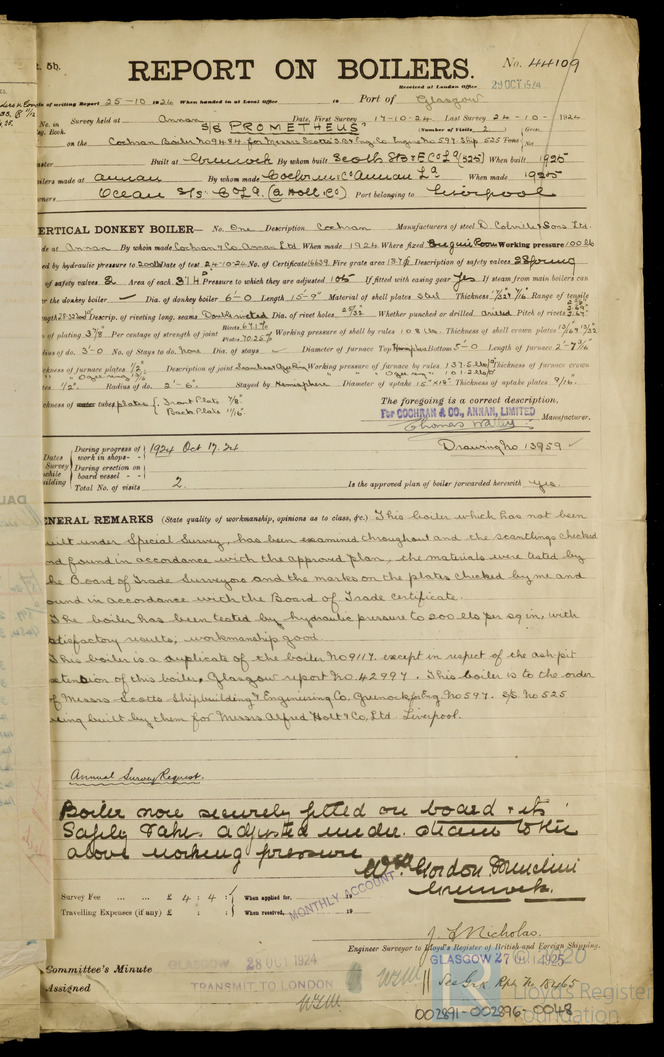 t. 5b.
REPORT ON BOILERS.
No. 44109
Received at London Office 29 OCT 1924
of writing Report 25-10-1924 When handed in at Local Office 19 Port of Glasgow
No. in Survey held at Annan Date, First Survey 17-10-24 Last Survey 24-10-1924
eg. Book. S/S PROMETHEUS (Number of Visits 2)
on the Cochran Boiler No 9484 for Messrs Scotts' S&Eng Co Engine No 597 Ship 525
Built at Greenock By whom built Scotts SB & E Co Ld (525) When built 1925
oilers made at Annan By whom made Cochran & Co Annan Ld When made 1925
wners Ocean S/S Co Ld. (A Holt & Co) Port belonging to Liverpool
ERTICAL DONKEY BOILER— No. One Description Cochran Manufacturers of steel D. Colville & Sons Ltd.
de at Annan By whom made Cochran & Co. Annan Ltd When made 1924 Where fixed Engine Room Working pressure 100 lb
ed by hydraulic pressure to 200 lb Date of test 24-10-24 No. of Certificate 16639 Fire grate area Description of safety valves Spring
of safety valves 2 Area of each Pressure to which they are adjusted 105 If fitted with easing gear Yes If steam from main boilers can
er the donkey boiler Dia. of donkey boiler 6'-0 Length 15'-9" Material of shell plates Steel Thickness Range of tensile
ngth 28-32 Descrip. of riveting long. seams Double riveted Dia. of rivet holes 25/32 Whether punched or drilled drilled Pitch of rivets
of plating 3 7/8 Per centage of strength of joint Rivets 67.1% Plates 70.25% Working pressure of shell by rules 108 lbs. Thickness of shell crown plates
adius of do. 3'-0 No. of Stays to do. None Dia. of stays Diameter of furnace Top Hemisphere Bottom 5'-0 Length of furnace
ckness of furnace plates 1/2" Description of joint Working pressure of furnace by rules Thickness of furnace crown
tes 1/2" Radius of do. 2'-6" Stayed by Hemisphere Diameter of uptake 15" x 18" Thickness of uptake plates 9/16.
ckness of water tubes plates { Front Plate 7/8"
Back Plate 11/16"
The foregoing is a correct description,
For COCHRAN & CO., ANNAN, LIMITED
Manufacturer.
Dates Survey while building
During progress of work in shops - - 1924 Oct 17. 24
During erection on board vessel - -
Total No. of visits 2.
Drawing No 13959
Is the approved plan of boiler forwarded herewith Yes.
ENERAL REMARKS (State quality of workmanship, opinions as to class, &c.) This boiler which has not been
uilt under Special Survey, has been examined throughout and the scantlings checked
nd found in accordance with the approved plan, the materials were tested by
he Board of Trade Surveyors and the marks on the plates checked by me and
ound in accordance with the Board of Trade certificate.
The boiler has been tested by hydraulic pressure to 200 lbs per sq in, with
atisfactory results, workmanship good.
This boiler is a duplicate of the boiler No 9117. except in respect of the ash pit
xtension of this boiler, Glasgow report No. 42997. This boiler is to the order
of Messrs Scotts Shipbuilding & Engineering Co. Greenock for Eng. No 597. S/S. No 525
eing built by them for Messrs Alfred Holt & Co, Ltd Liverpool.
Annual Survey Request.
Boiler now securely fitted on board & its
Safety Valves adjusted under steam to the
above working pressure
Wm Gordon
Greenock.
Survey Fee ... ... £ 4 : 4 : When applied for, 19
Travelling Expenses (if any) £ : : When received, 19
MONTHLY ACCOUNT
J. S. Nicholas.
Engineer Surveyor to Lloyd's Register of British and Foreign Shipping.
Committee's Minute
GLASGOW 28 OCT 1924
GLASGOW 1925
Assigned
TRANSMIT TO LONDON
See Grk Rpt No
Lloyd's Register
Foundation
002891-002896-0048